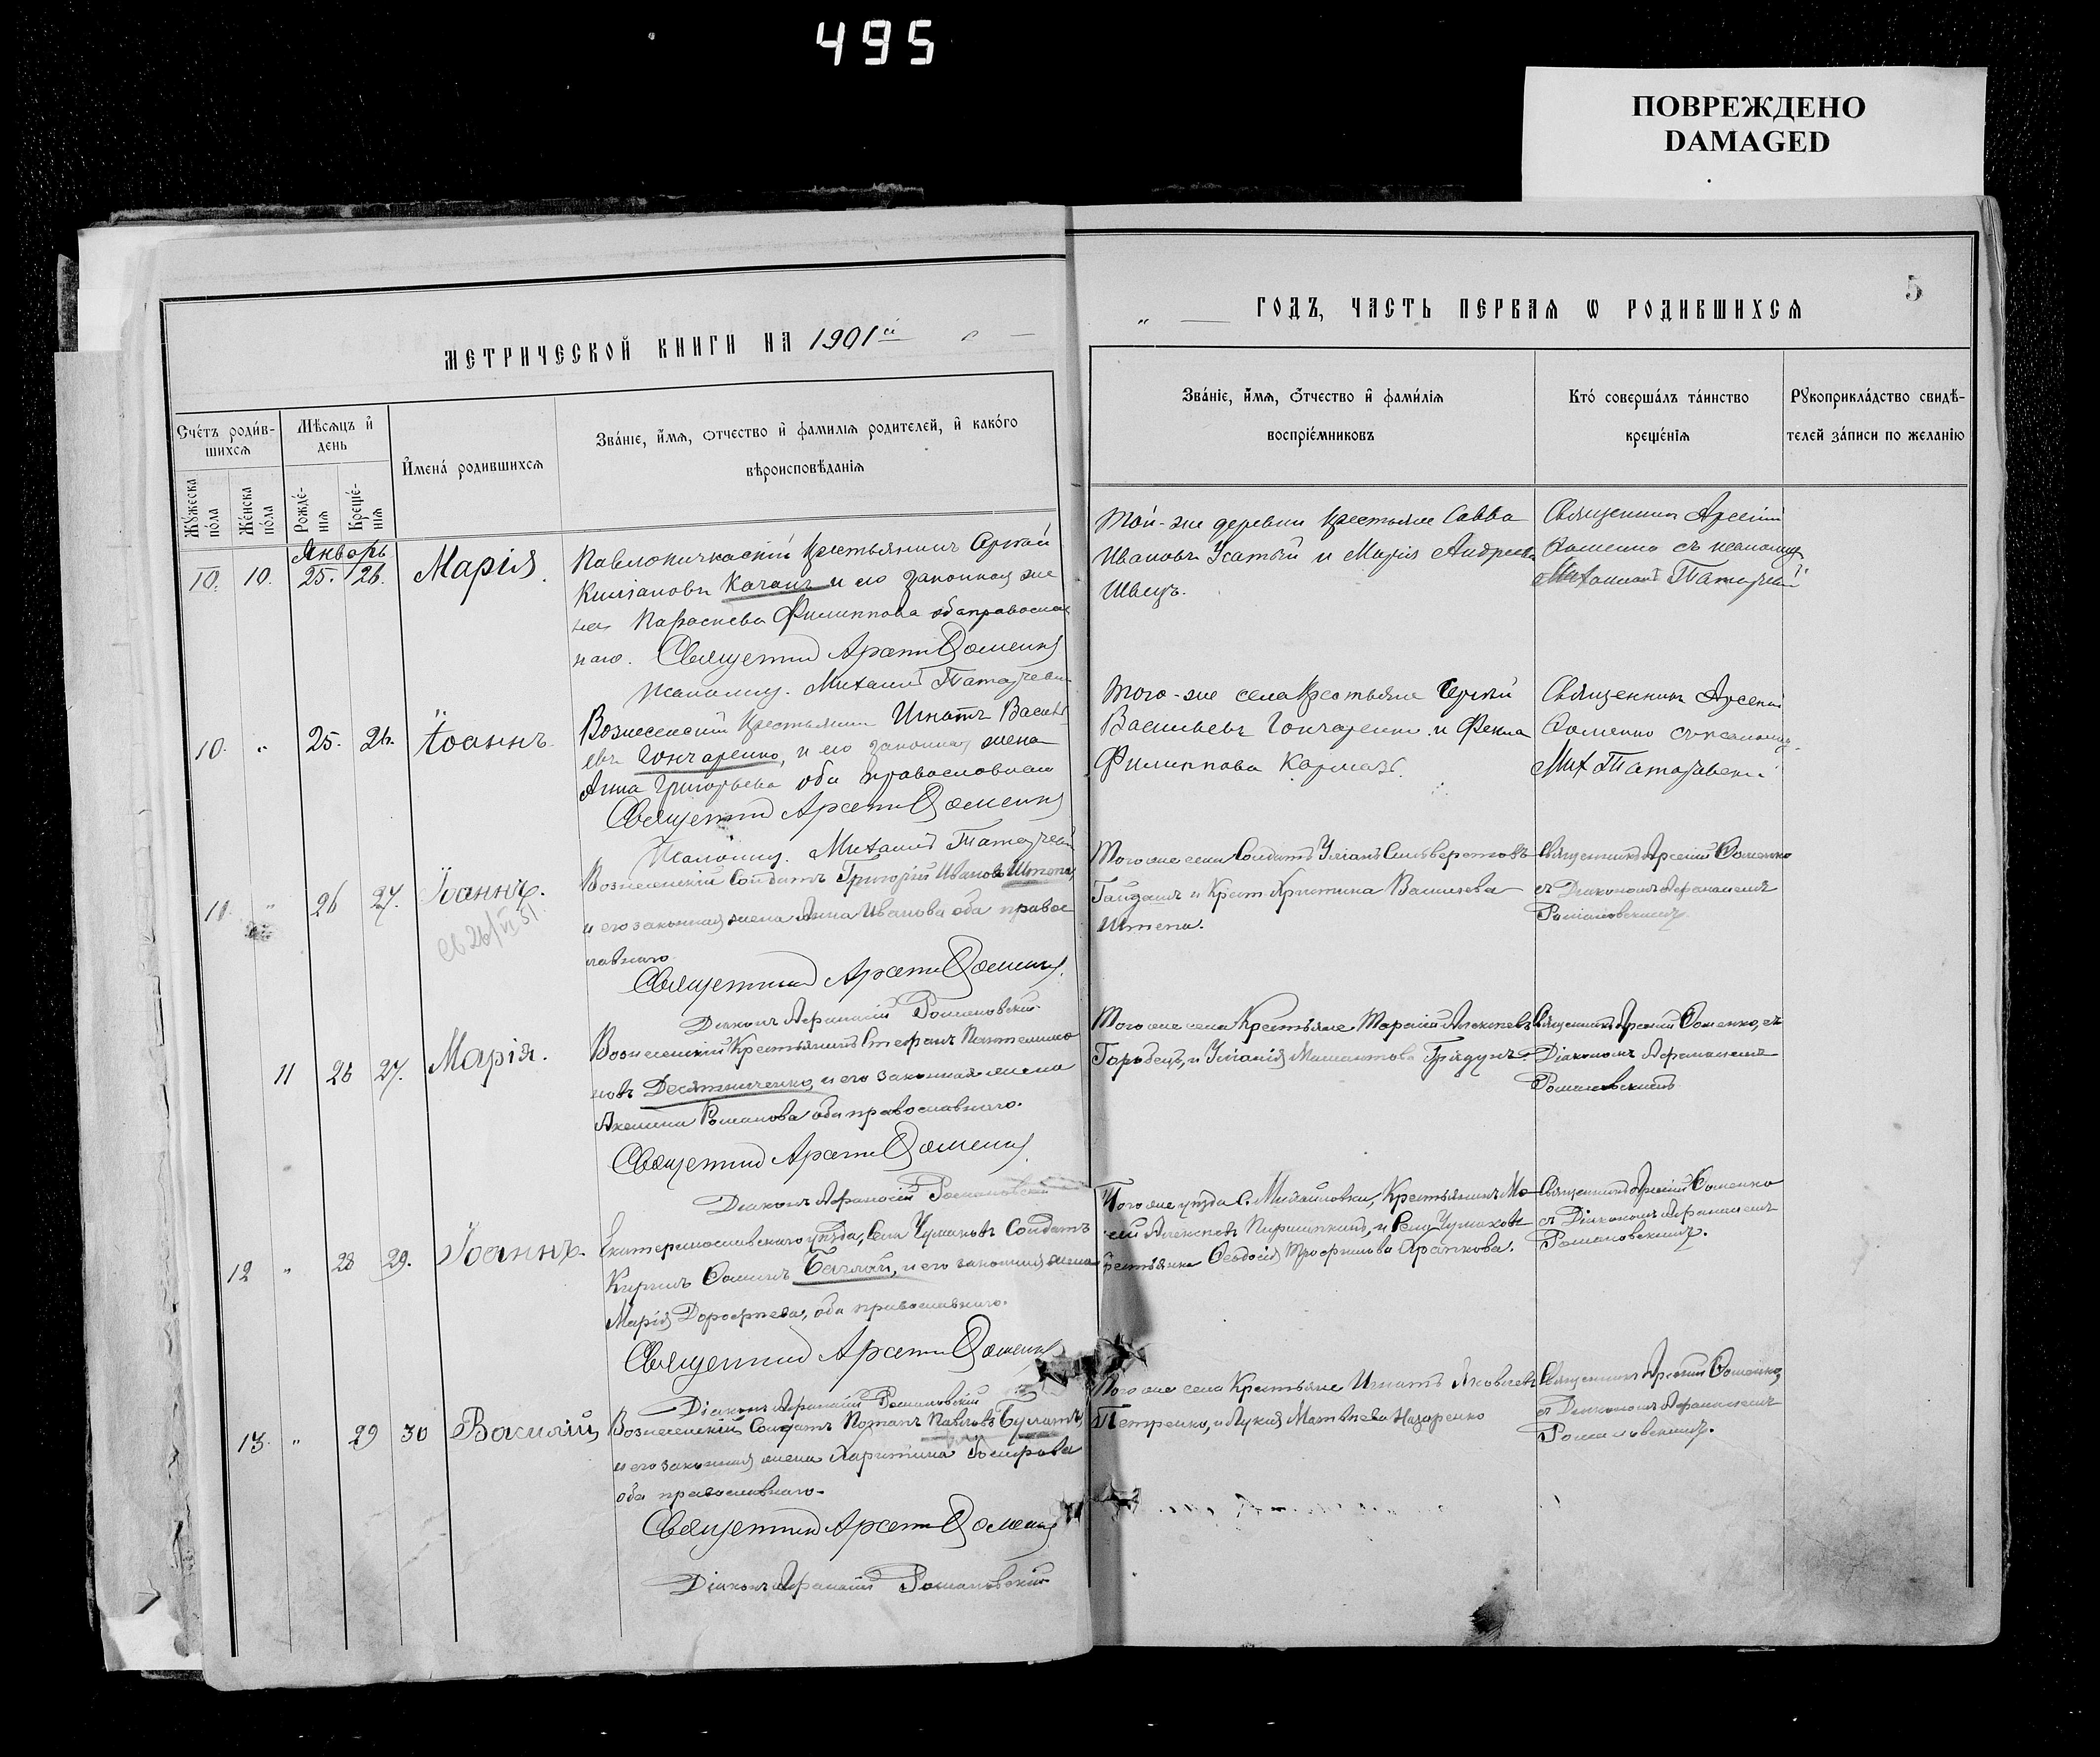 495
ПОВРЕЖДЕНО
DAMAGED
5
МЕТРИЧЕСКОЙ КНИГИ НА 1901й
ГОДЪ, ЧАСТЬ ПЕРВАЯ Ѡ РОДИВШИХСЯ
Сче́тъ роди́в-
шихсѧ
Мѣ́сѧцъ и҆
день
И҆мена́ родившихсѧ
Зва́нїе, и҆́мѧ, ѻтчество и҆ фамилїѧ родителей, и҆ како́го
вѣроисповѣ́данїѧ
Мꙋ́жеска
по́ла
Же́нска
по́ла
Рожде́-
нїѧ
Креще́-
нїѧ
Зва́нїе, и҆́мѧ, ѻ҆́тчество и҆ фами́лїѧ
воспрїе́мниковъ
Кто́ соверша́лъ та́инство
креще́нїѧ
Рꙋкоприкла́дство свидѣ́-
телей за́писи по жела́нїю
Январь
10. 10. 25. 26. Марія.
Павлокичкаскій крестьянинъ Сергѣй
Киліановъ Качанъ и его законная же
на Параскева Филиппова оба православ
наго. Священникъ Арсеній Ѳоменко
Псаломщ. Михаилъ
Той-же деревни крестьяне Савва
Ивановъ Усатый и Марія Андреева
Швецъ.
Священникъ Арсеній
Ѳоменко съ псаломщ.
Михаиломъ
10. " 25. 26. Іоаннъ.
Вознесенскій крестьянинъ Игнатъ Василь
евъ Гончаренко, и его законная жена
Анна Григорьева оба православнаго
Священникъ Арсеній Ѳоменко
Псаломщ. Михаилъ
Того-же села крестьяне Сергѣй
Васильевъ Гончаренко и Фекла
Филиппова Кармазъ.
Священникъ Арсеній
Ѳоменко съ псаломщ.
Мих
11. " 26 27. Іоаннъ.
Вознесенскій Солдатъ Григорій Ивановъ Штепа,
и его законная жена Анна Иванова оба правос
лавнаго
Священникъ Арсеній Ѳоменко.
Діаконъ Аѳанасій Романовскій
Того же села Солдатъ Уліанъ Сильверстовъ
Гайдашъ и Крест. Христина Васильева
Штепа.
Священникъ Арсеній Ѳоменко
съ Діакономъ Аѳанасіемъ
Романовскимъ
11 26 27. Марія.
Вознесенскій Крестьянинъ Стефанъ Пантелимо
новъ Десятниченко, и его законная жена
Акилина Романова оба православнаго.
Священникъ Арсеній Ѳоменко.
Діаконъ Аѳанасій Романовскій
Того же села Крестьяне Тарасій Алексѣевъ
Городецъ, и Уліанія
Священникъ Арсеній Ѳоменко, съ
Діакономъ Аѳанасіемъ
Романовскимъ
12 " 28 29. Іоаннъ.
Екатеринославскаго уѣзда, Села Чумаковъ Солдатъ
Кириллъ Ѳоминъ и его законная жена
Марія Дороѳеева, оба православнаго.
Священникъ Арсеній Ѳоменко
Діаконъ Аѳанасій Романовскій
Того же уѣзда С. Михайловки, Крестьянинъ Мо
сей Алексѣевъ и Села Чумаковъ
Крестьянка Ѳеодосія Трофимова
Священникъ Арсеній Ѳоменко
съ Діакономъ Аѳанасіемъ
Романовскимъ.
13. " 29 30 Василій
Вознесенскій Солдатъ Романъ Павловъ Булатъ,
и его законная жена Харитина
оба православнаго.
Священникъ Арсеній Ѳоменко
Діаконъ Аѳанасій Романовскій
Того же села Крестьяне Игнатъ Яковлевъ
Петренко, и Лукія Матвѣева Назаренко
Священникъ Арсеній Ѳоменко,
съ Діакономъ Аѳанасіемъ
Романовскимъ.